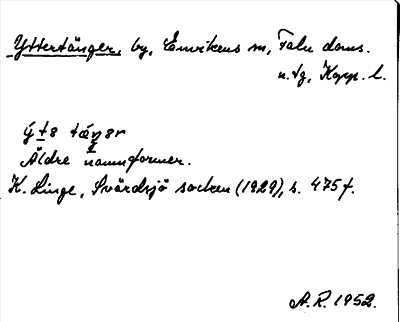 Yttertänger, by, Envikens sn, Falu doms.
n. tg, Kopp. l.
ý t s tä́ŋər
Äldre namnformer.
K. Linge, Svärdsjö socken (1929), s. 475 f.
A. R. 1952.